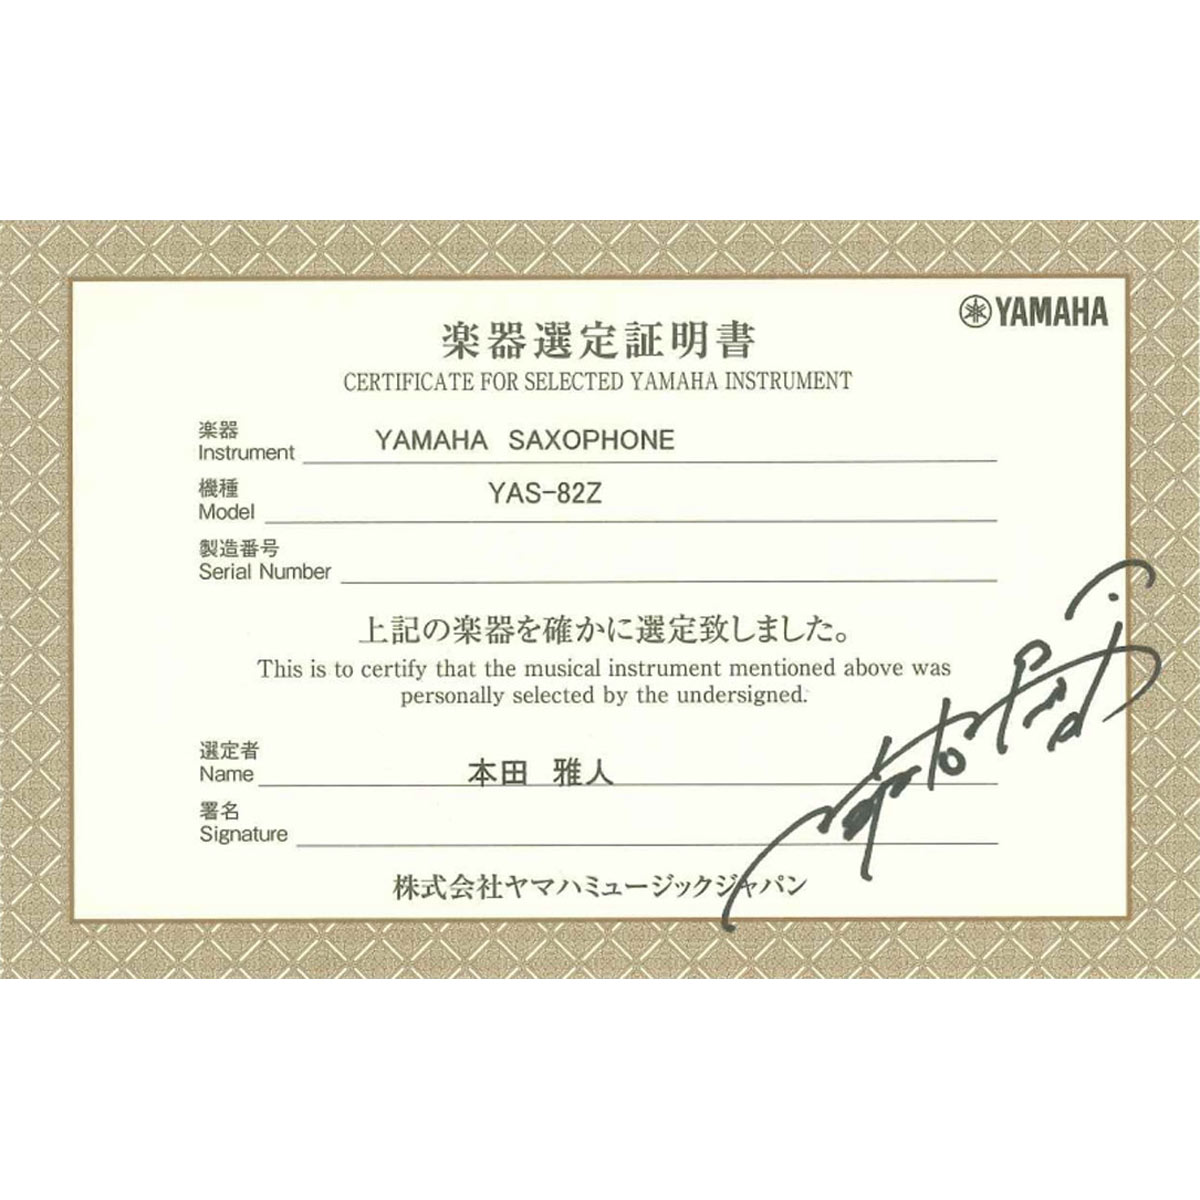 YAMAHA
楽器選定証明書
CERTIFICATE FOR SELECTED YAMAHA INSTRUMENT
楽器
Instrument YAMAHA SAXOPHONE
機種
Model YAS-82Z
製造番号
Serial Number
上記の楽器を確かに選定致しました。
This is to certify that the musical instrument mentioned above was
personally selected by the undersigned.
選定者
Name 本田 雅人
署名
Signature
株式会社ヤマハミュージックジャパン